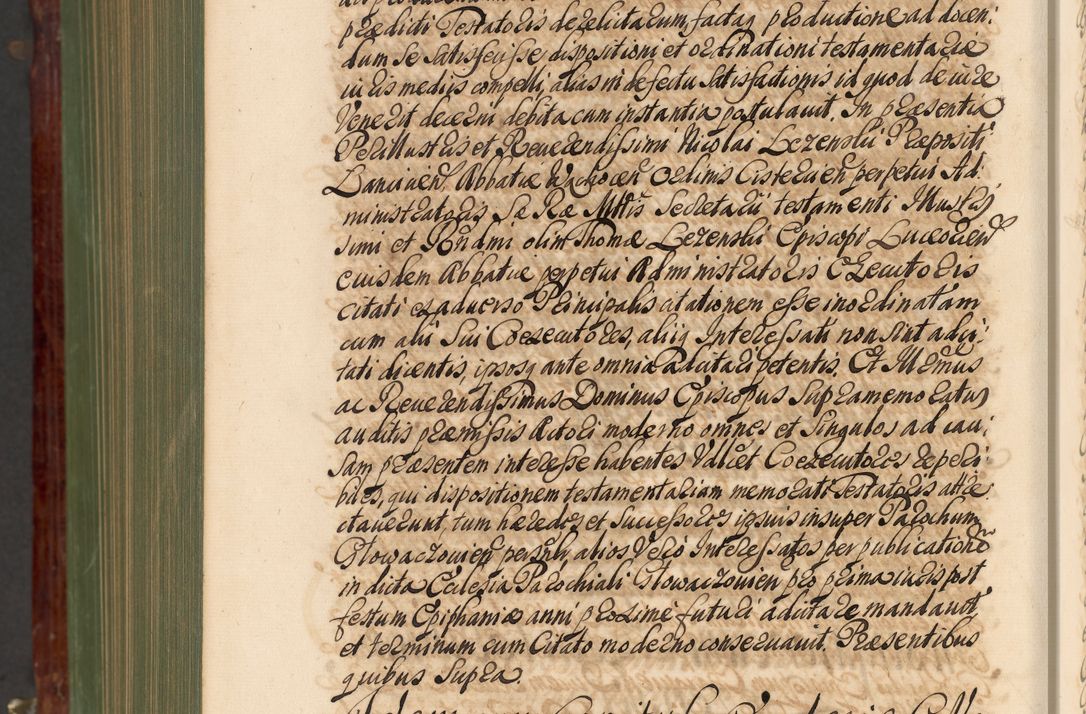 prædicti Testatoris derelictarum, factaq productione ad docen:
dum se satisfecisse dispositioni et ordinationi testamentariæ
iuris medijs compelli, alias in defectu satisfactionis id quod de iure
venerit decerni debita cum instantia postulavit. In præsentia
Perillustris et Reverendissimi Nicolai Lezenski Præpositi
Lancicien Abbatiæ Wąchocen Ordinis Cistercien perpetui Ad:
ministratoris S. Ræ Mttis Secretarii testamenti Illustris:
simi et Rndmi olim Thomæ Lezenski Episcopi Luceorien
eiusdem Abbatiæ perpetui Administratoris Executoris
citati ex adverso Principalis citationem esse inordinatam
cum alii sui Coexecutores, aliiq Interessati non sint adci:
tati dicentis, ipsosq ante omnia adcitari petentis. Et Illmus
ac Reverendissimus Dominus Episcopus supramemoratus
auditis præmissis Actori moderno omnes et singulos ad cau:
sam præsentem interesse habentes valuet Coexecutores reperi:
biles, qui dispositionem testamentariam memorati Testatoris attre:
ctaverunt, tum hæredes et successores ipsius insuper Parochum
Głowaczovien personlr alios vero Interessatos per publicationem
in dicta Ecclesia Parochiali Głowaczovien pro prima iuris post
festum Epiphaniæ anni proxime futuri adcitare mandavit
et terminum cum Citato moderno conservavit. Præsentibus
quibus supra.